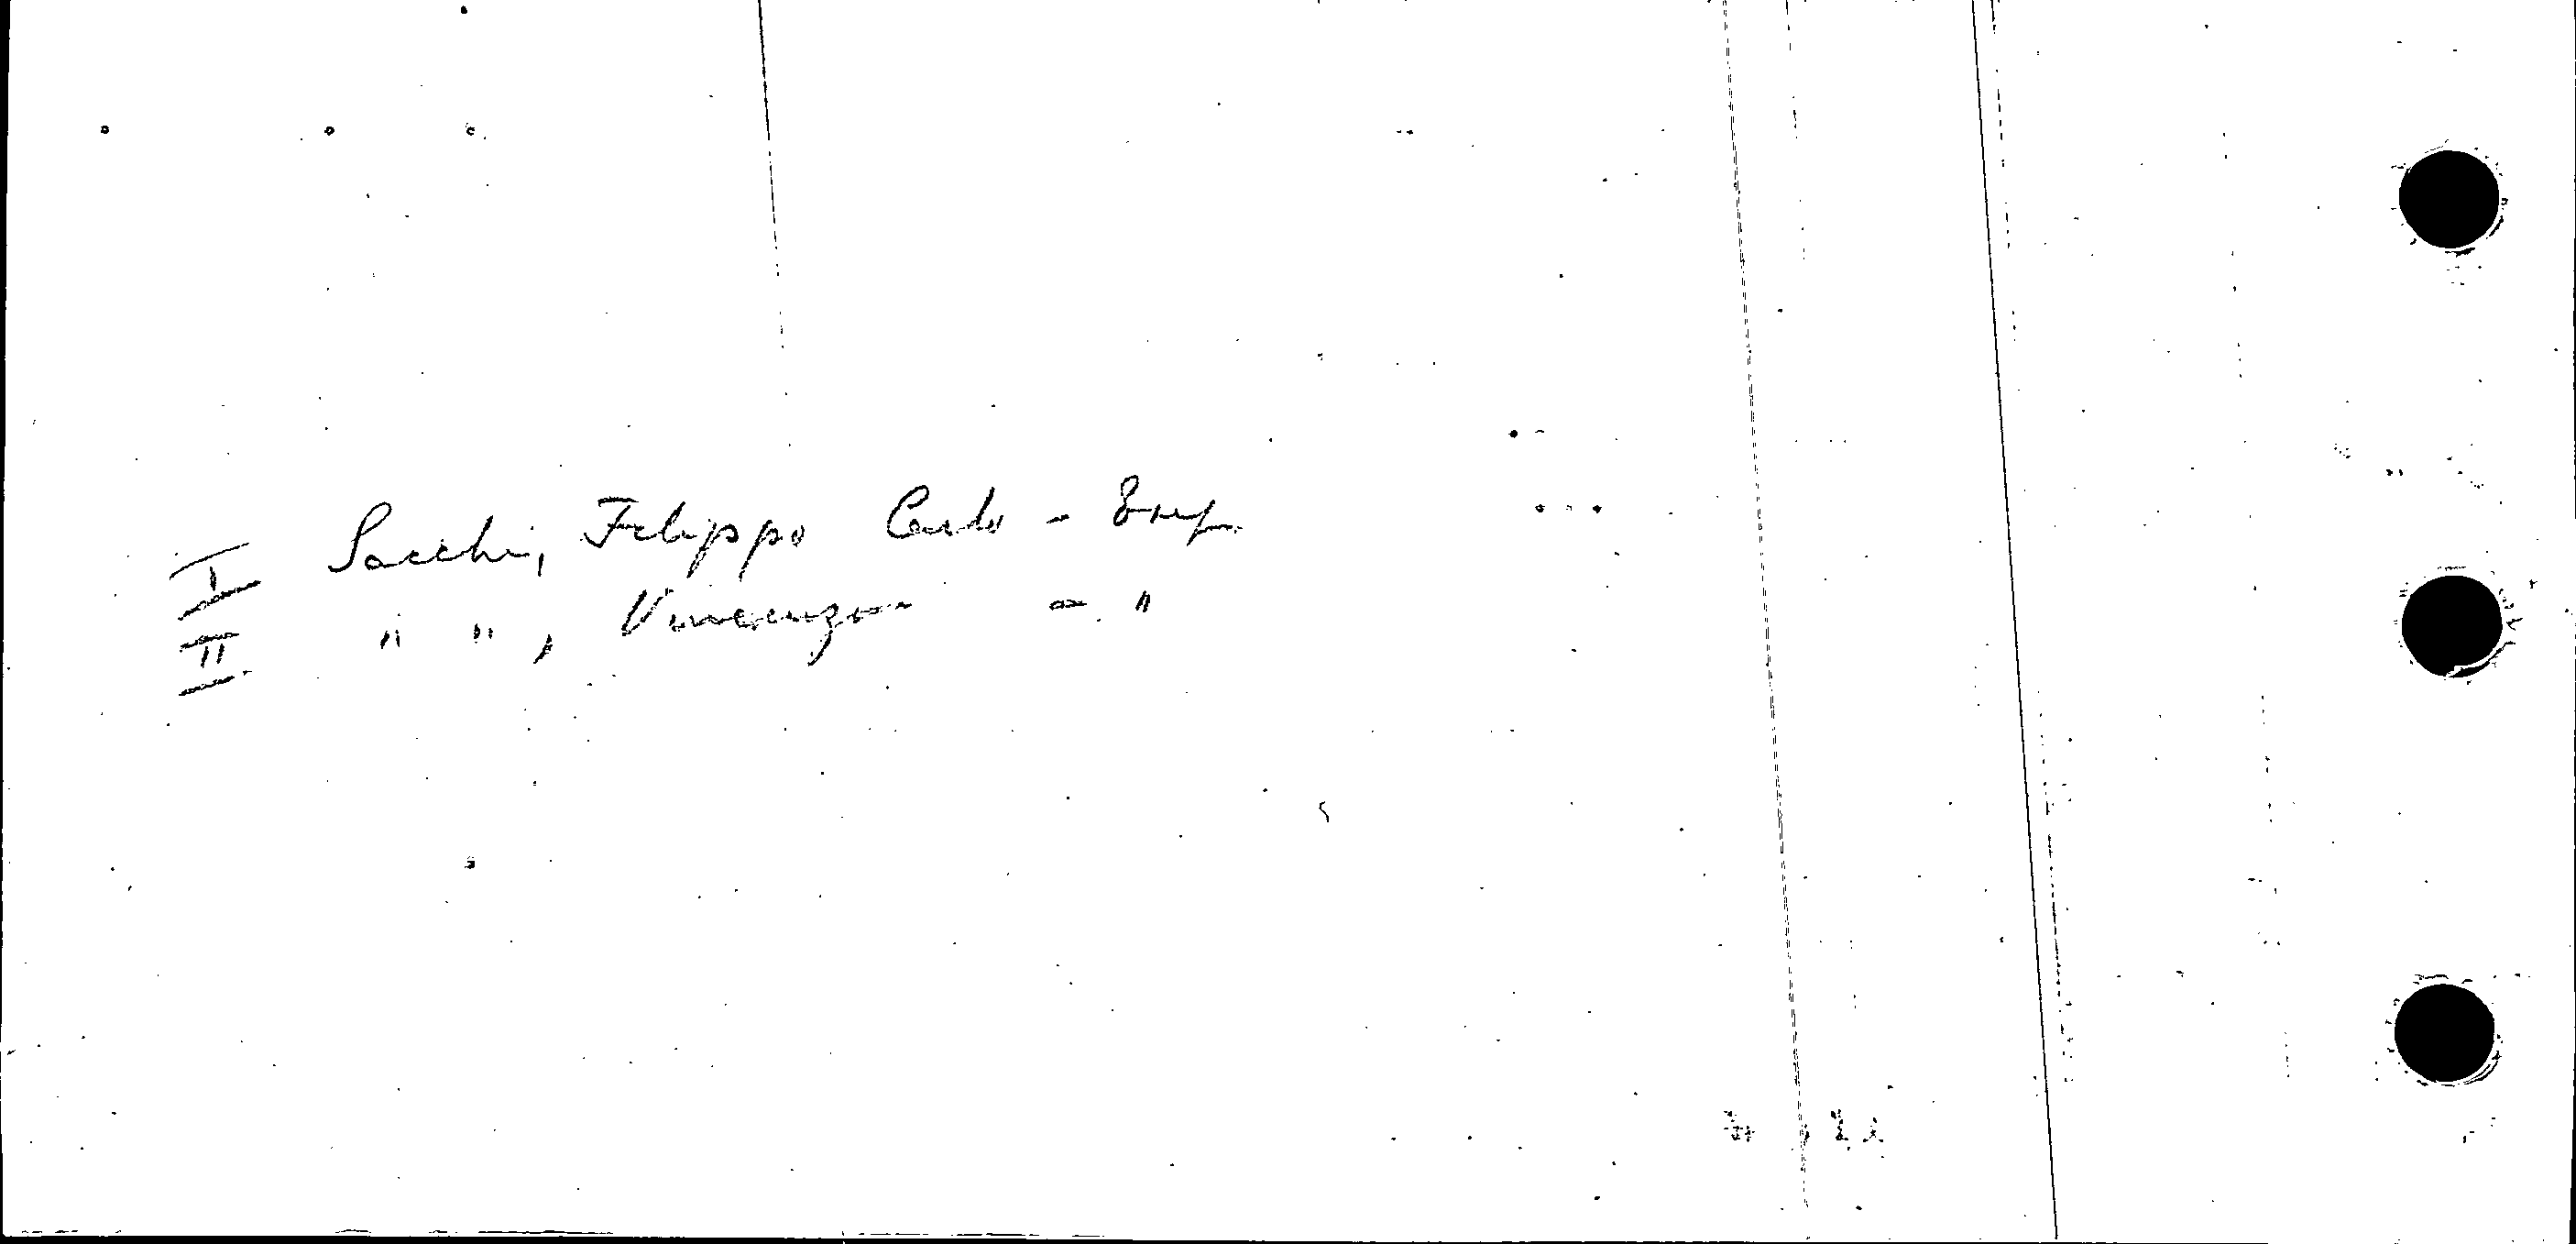 I Sacchi, Filippo Carlo - Emp.
II " ", Vincenzo - "